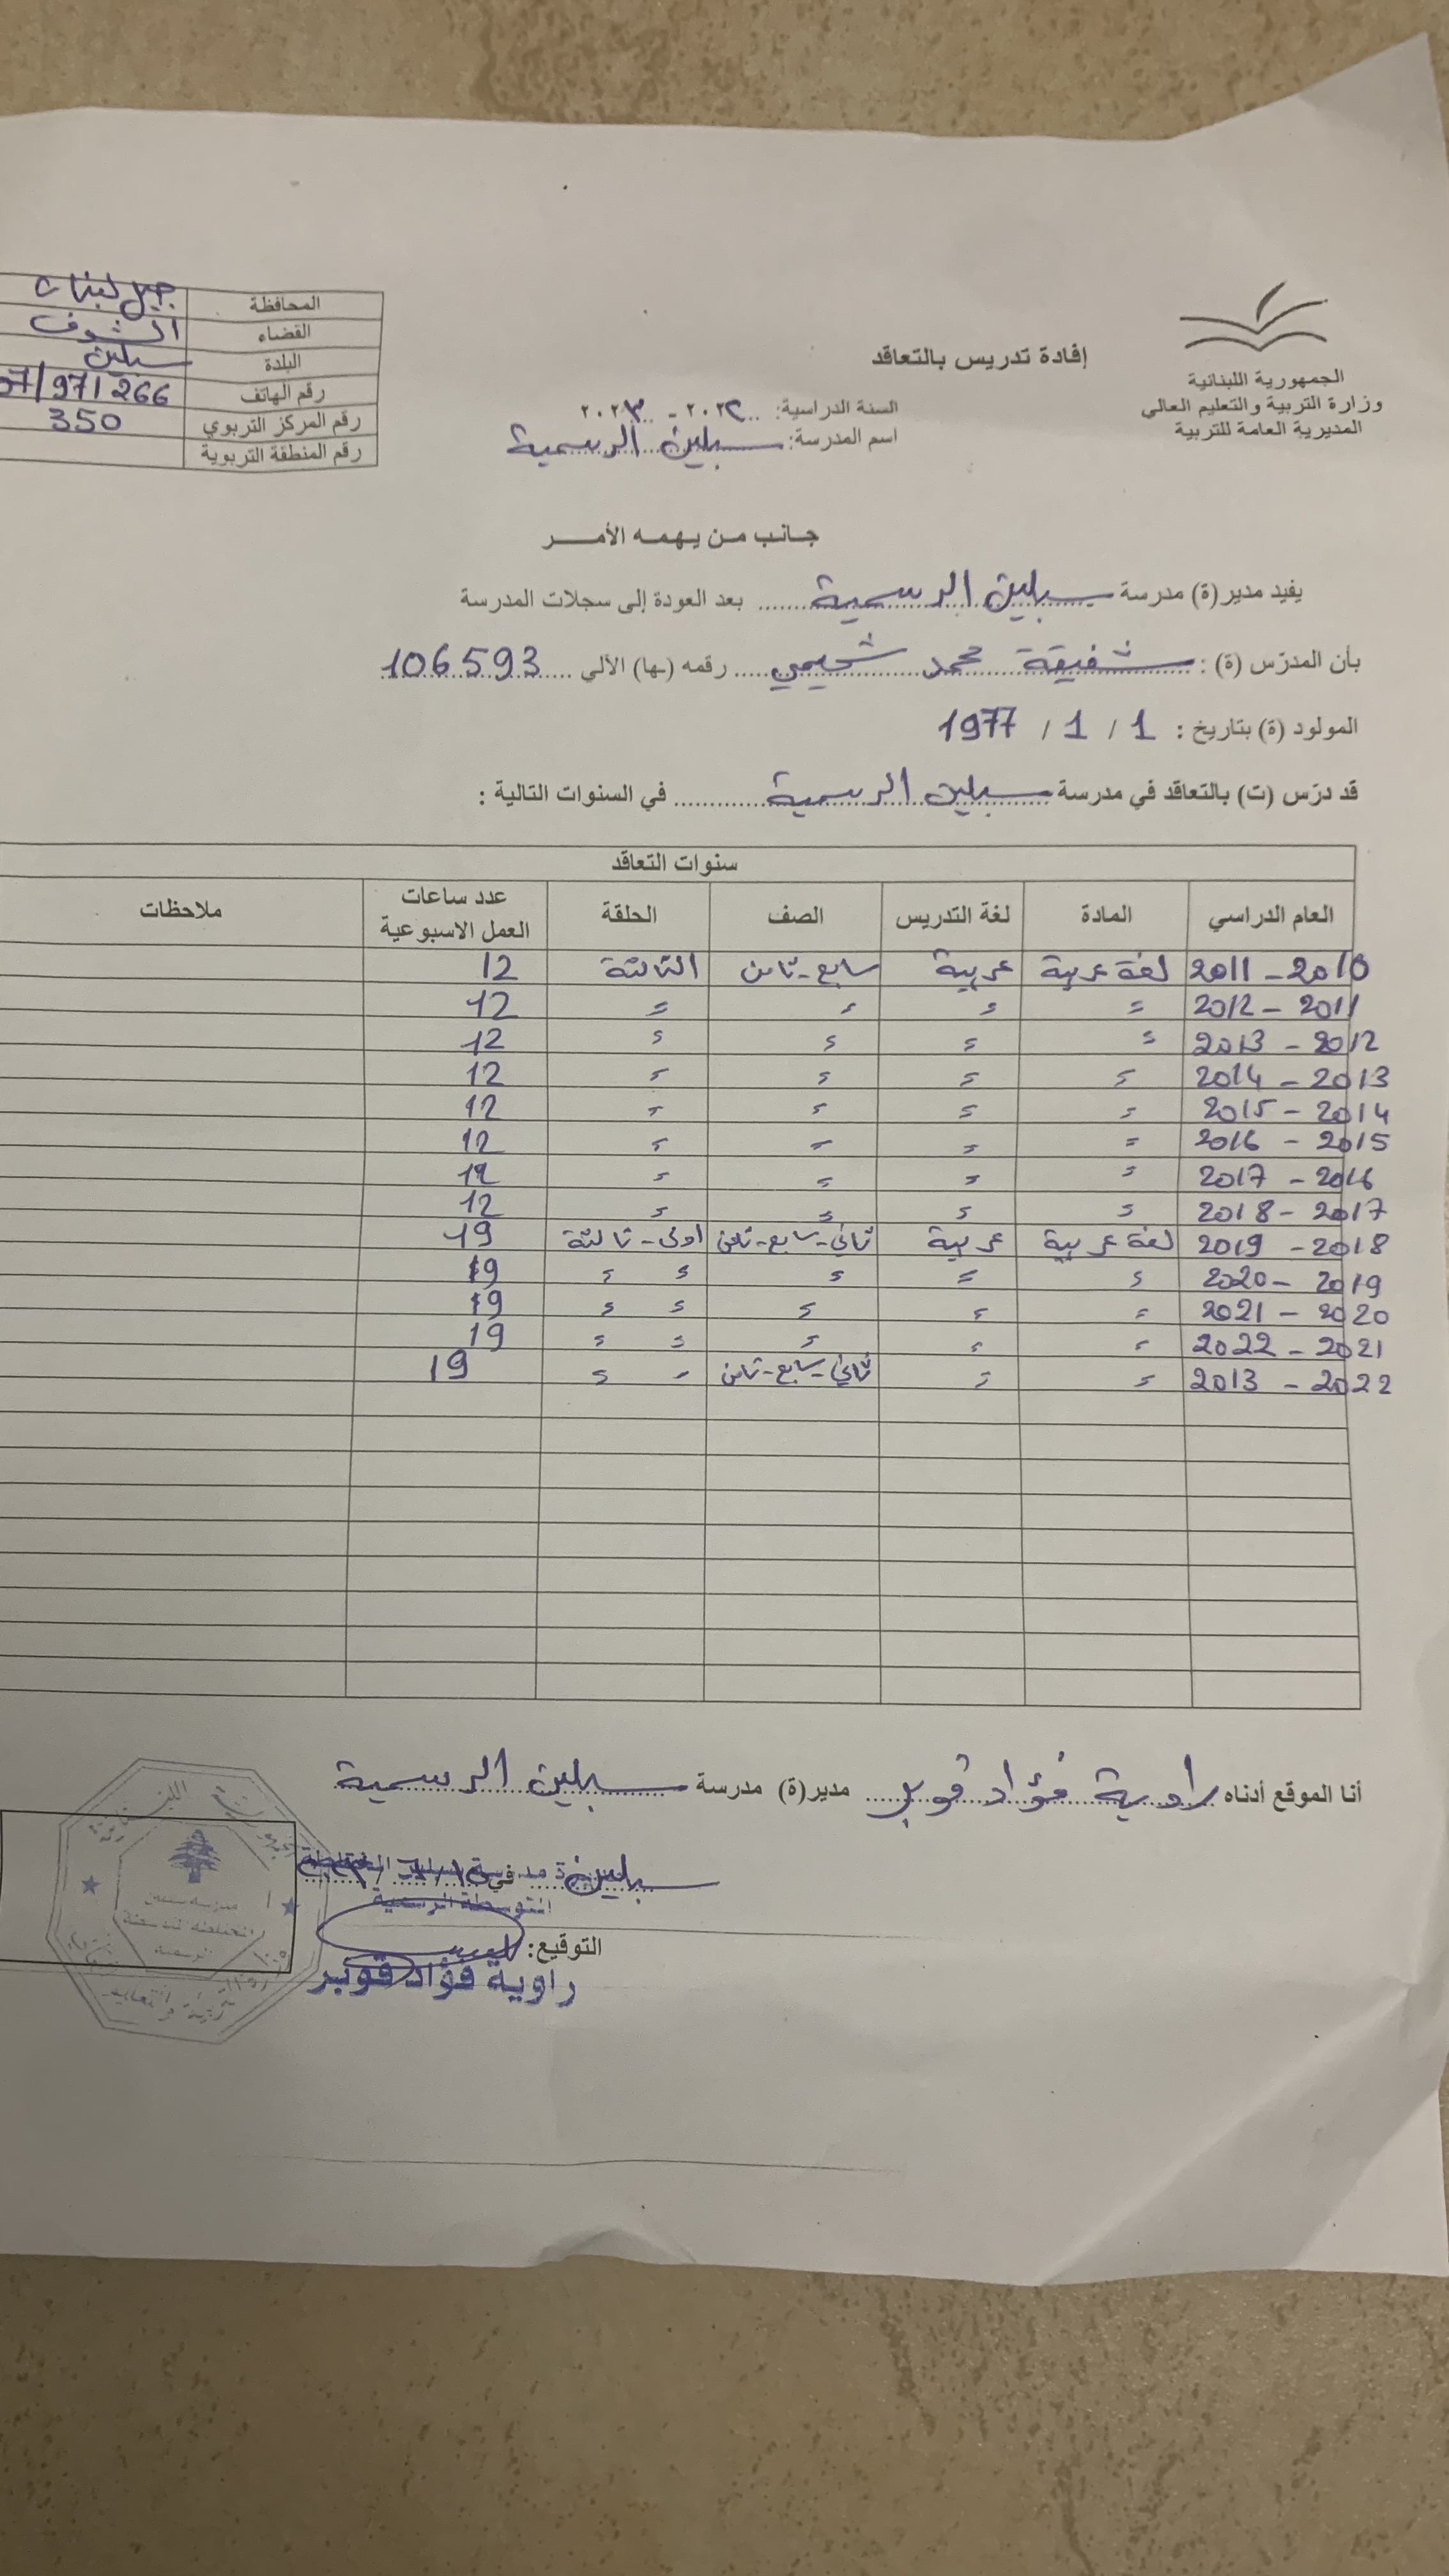 الجمهورية اللبنانية
وزارة التربية والتعليم العالي
المديرية العامة للتربية
إفادة تدريس بالتعاقد
السنة الدراسية: ٢٠٢٢ - ٢٠٢٣
اسم المدرسة: سبلين الرسمية
المحافظة جبل لبنان
القضاء الشوف
البلدة سبلين
رقم الهاتف 07/971266
رقم المركز التربوي 350
رقم المنطقة التربوية
جانب من يهمه الأمر
يفيد مدير(ة) مدرسة سبلين الرسمية بعد العودة إلى سجلات المدرسة
بأن المدرّس (ة) : شفيقة محمد شحيمي رقمه (ـها) الآلي 106593
المولود (ة) بتاريخ : 1 / 1 / 1977
قد درّس (ت) بالتعاقد في مدرسة سبلين الرسمية في السنوات التالية :
سنوات التعاقد
العام الدراسي المادة لغة التدريس الصف الحلقة عدد ساعات العمل الاسبوعية ملاحظات
2010 - 2011 لغة عربية عربية سابع - ثامن الثالثة 12
2011 - 2012 = = = = 12
2012 - 2013 = = = = 12
2013 - 2014 = = = = 12
2014 - 2015 = = = = 12
2015 - 2016 = = = = 12
2016 - 2017 = = = = 12
2017 - 2018 = = = = 12
2018 - 2019 لغة عربية عربية ثاني - سابع - ثامن اولى - ثالثة 19
2019 - 2020 = = = = = 19
2020 - 2021 = = = = = 19
2021 - 2022 = = = = = 19
2022 - 2013 = = ثاني - سابع - ثامن = = 19
أنا الموقع أدناه راوية فؤاد قوبر مدير(ة) مدرسة سبلين الرسمية
سبلين في
المتوسطة الرسمية
التوقيع:
راوية فؤاد قوبر